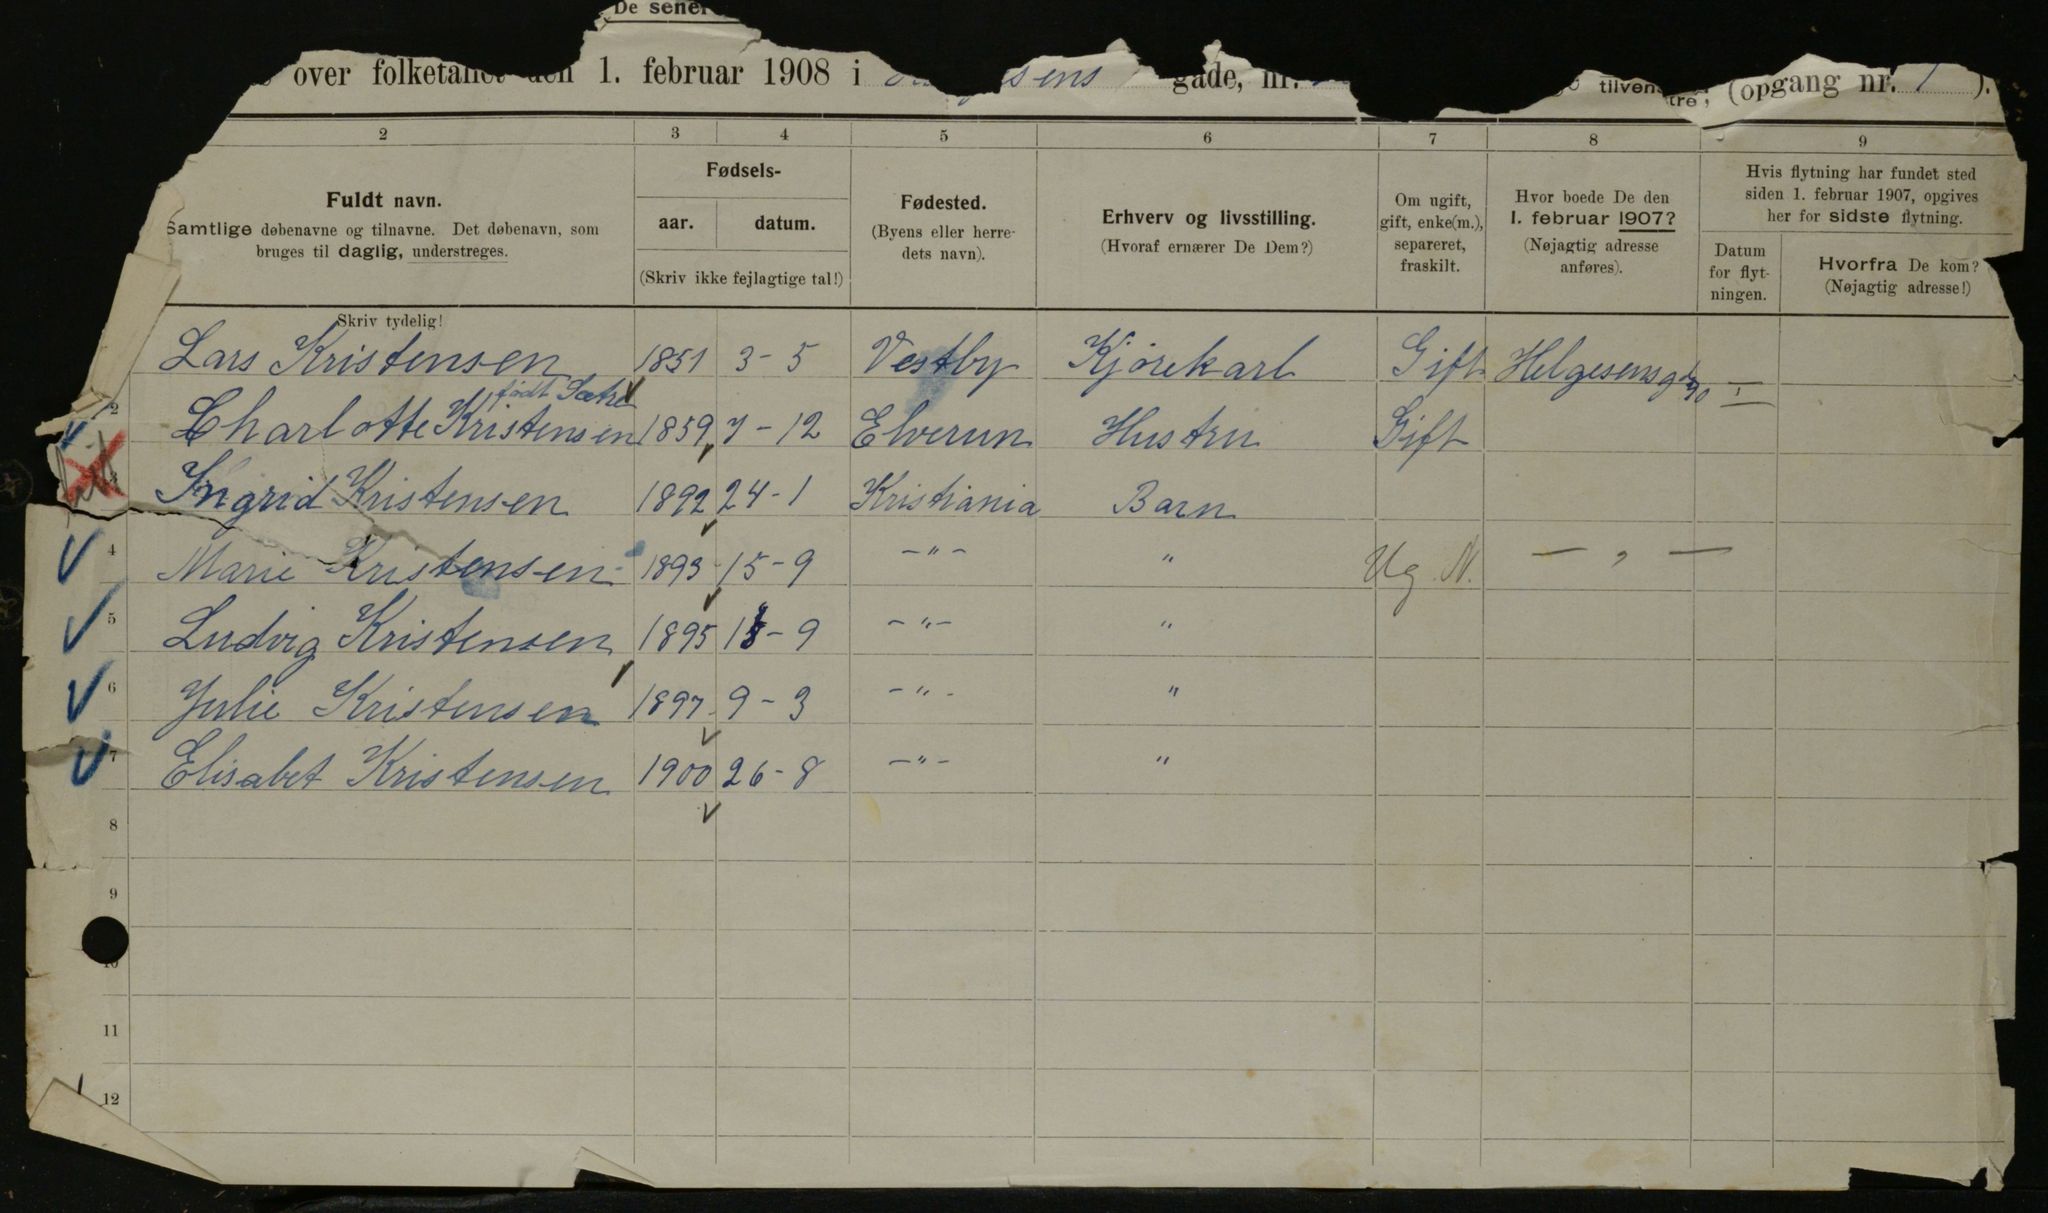 De sener
over folketallet den 1. februar 1908 i gade, nr. tilvens tre, (opgang nr. 1 ).
2 3 4 5 6 7 8 9
Fuldt navn.
Samtlige døbenavne og tilnavne. Det døbenavn, som
bruges til daglig, understreges.
Skriv tydelig!
Fødsels-
aar. datum.
(Skriv ikke fejlagtige tal!)
Fødested.
(Byens eller herre-
dets navn).
Erhverv og livsstilling.
(Hvoraf ernærer De Dem?)
Om ugift,
gift, enke(m.),
separeret,
fraskilt.
Hvor boede De den
1. februar 1907?
(Nøjagtig adresse
anføres).
Hvis flytning har fundet sted
siden 1. februar 1907, opgives
her for sidste flytning.
Datum
for flyt-
ningen.
Hvorfra De kom?
(Nøjagtig adresse!)
Lars Kristensen 1851 3-5 Vestby Kjørekarl Gift Helgesensgd 90 I
født Sætre
2 Charlotte Kristensen 1859 7-12 Elverum Hustru Gift
3 Ingrid Kristensen 1892 24-1 Kristiania Barn
4 Marie Kristensen 1893 15-9 -"- " Ug. N. — " —
5 Ludvig Kristensen 1895 -9 -"- "
6 Julie Kristensen 1897 9-3 -"- "
7 Elisabet Kristensen 1900 26-8 -"- "
8
9
10
11
12